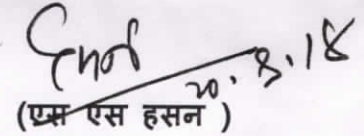 20.8.18
(एस एस हसन)